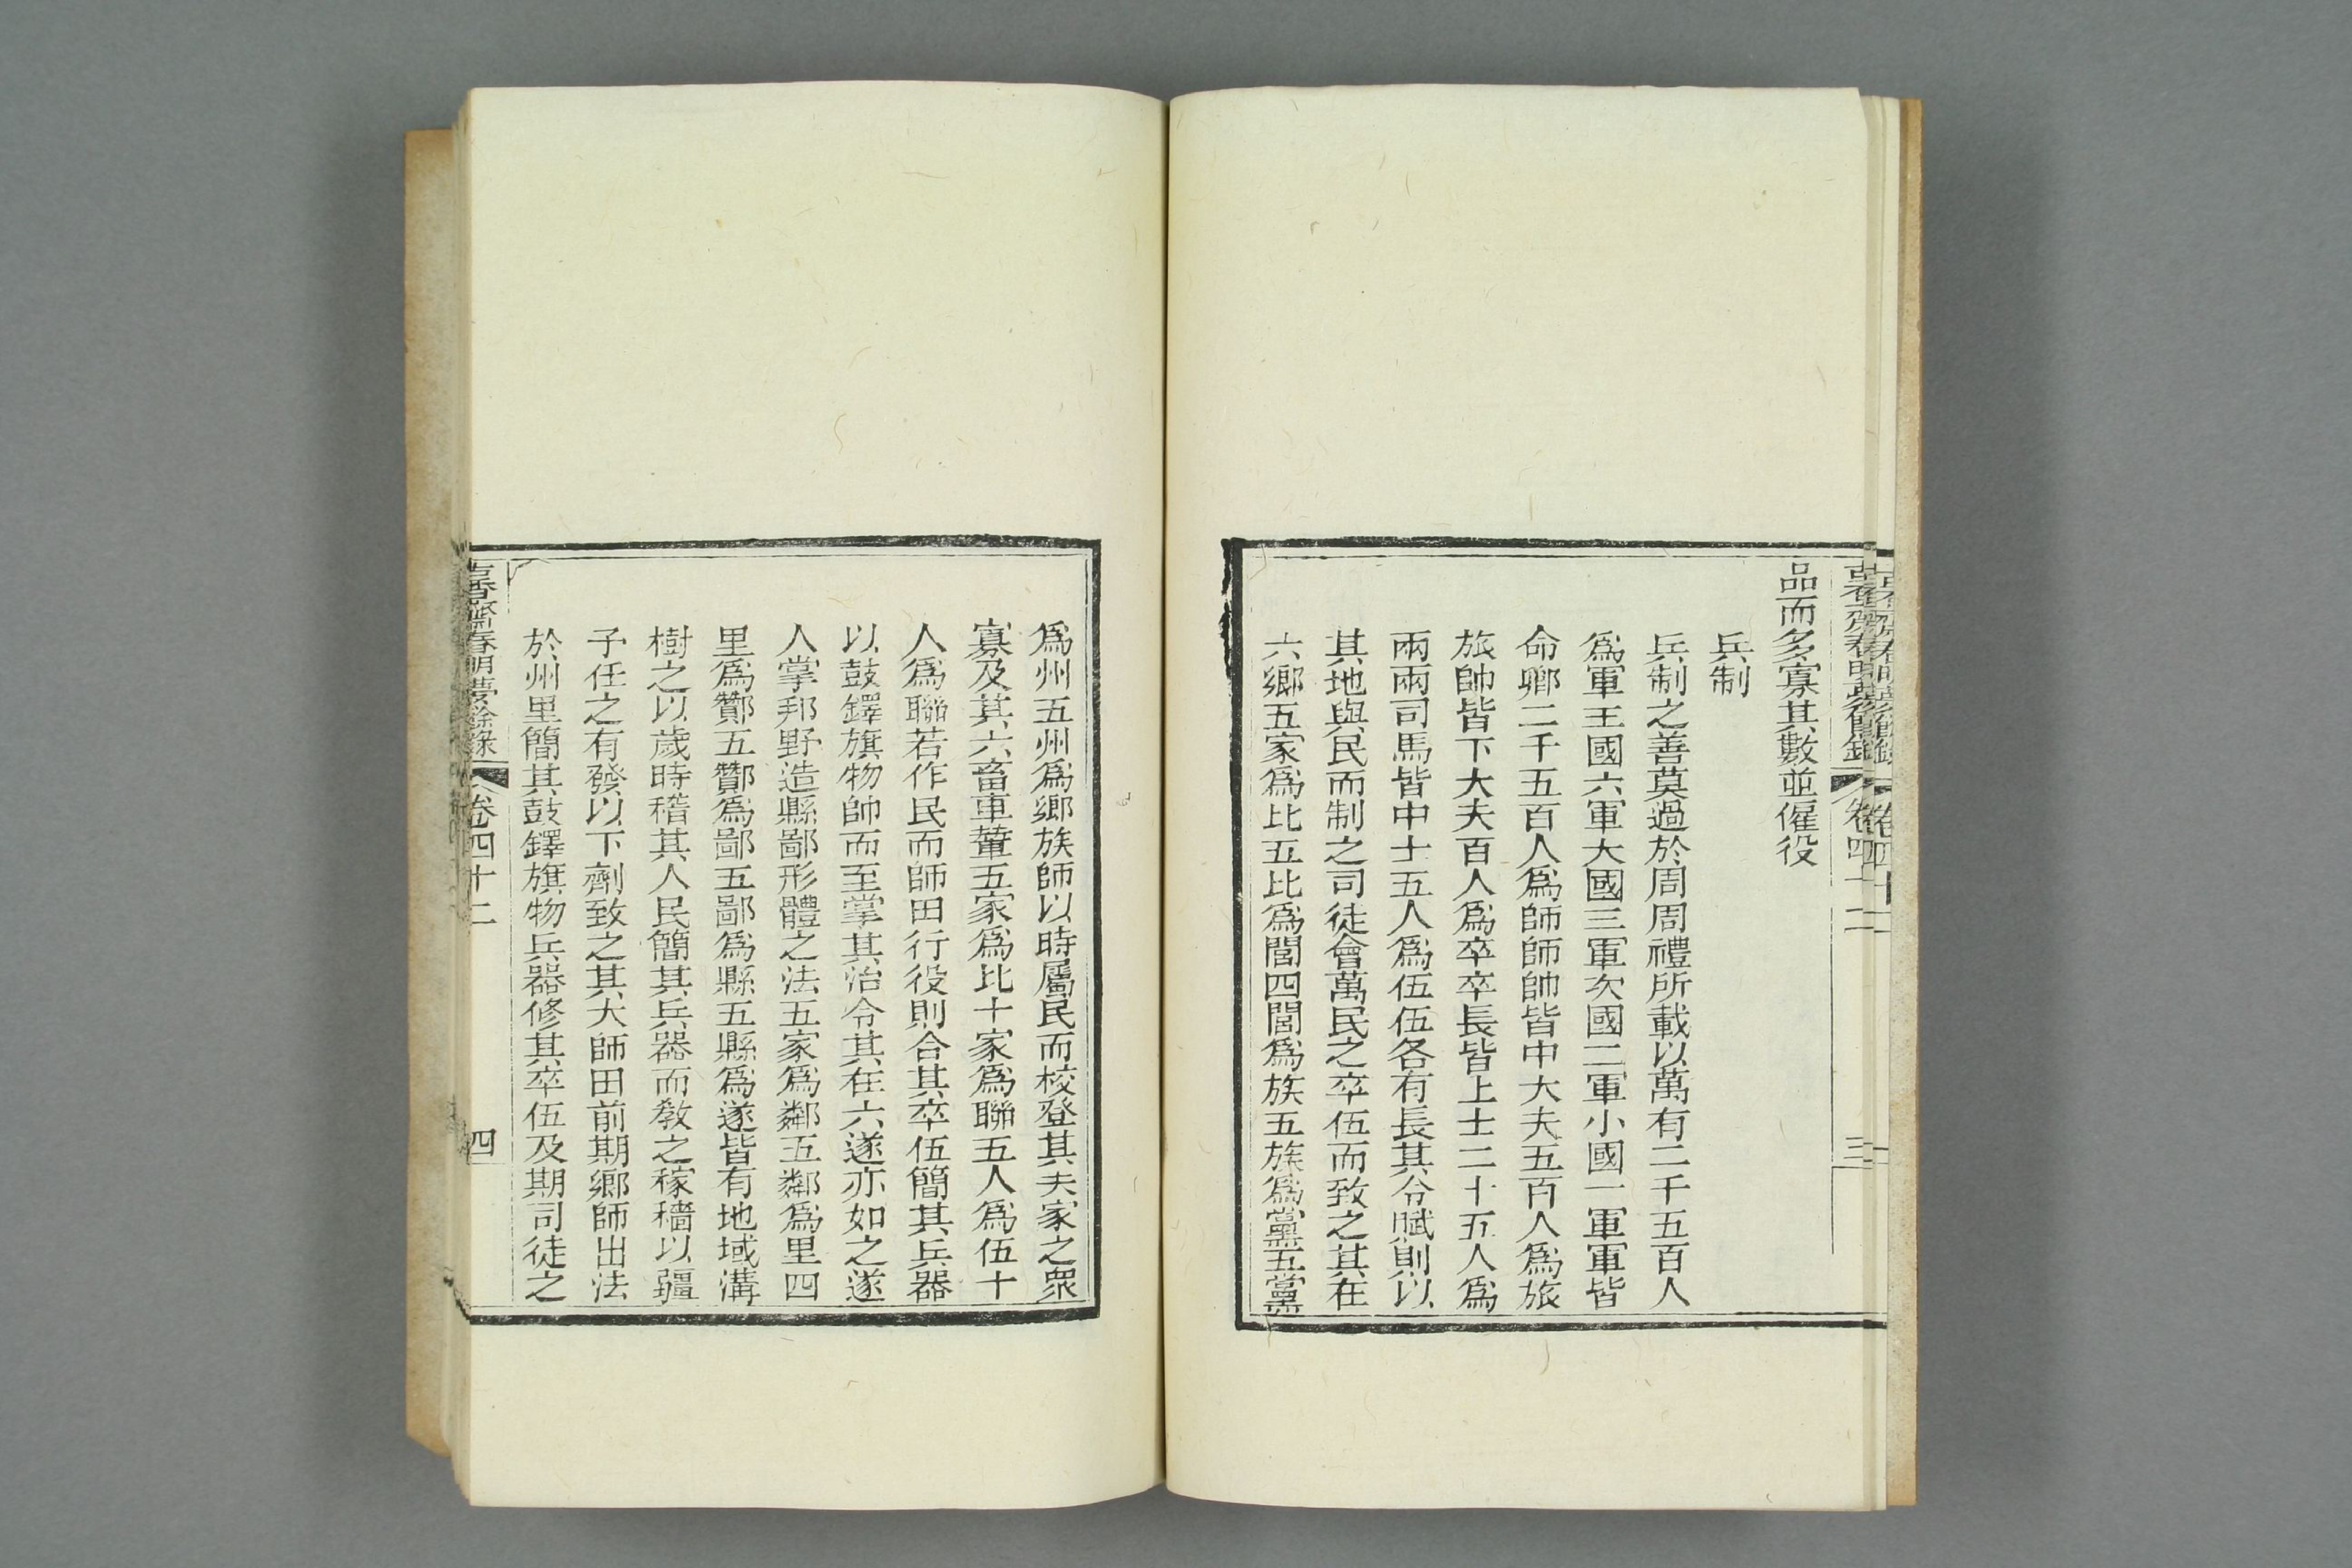 品而多寡其數並僱役
兵制
兵制之善莫過於周周禮所載以萬有二千五百人
爲軍王國六軍大國三軍次國二軍小國一軍軍皆
命卿二千五百人爲師師帥皆中大夫五百人爲旅
旅帥皆下大夫百人爲卒卒長皆上士二十五人爲
兩兩司馬皆中士五人爲伍伍各有長其令賦則以
其地與民而制之司徒會萬民之卒伍而致之其在
六鄉五家爲比五比爲閭四閭爲族五族爲黨五黨
爲州五州爲鄉族師以時屬民而校登其夫家之衆
寡及其六畜車輦五家爲比十家爲聯五人爲伍十
人爲聯若作民而師田行役則合其卒伍簡其兵器
以鼓鐸旗物帥而至掌其治令其在六遂亦如之遂
人掌邦野造縣鄙形體之法五家爲鄰五鄰爲里四
里爲酇五酇爲鄙五鄙爲縣五縣爲遂皆有地域溝
樹之以歲時稽其人民簡其兵器而敎之稼穡以疆
子任之有發以下劑致之其大師田前期鄉師出法
於州里簡其鼓鐸旗物兵器修其卒伍及期司徒之
古香齋春明夢餘錄 卷四十二 四